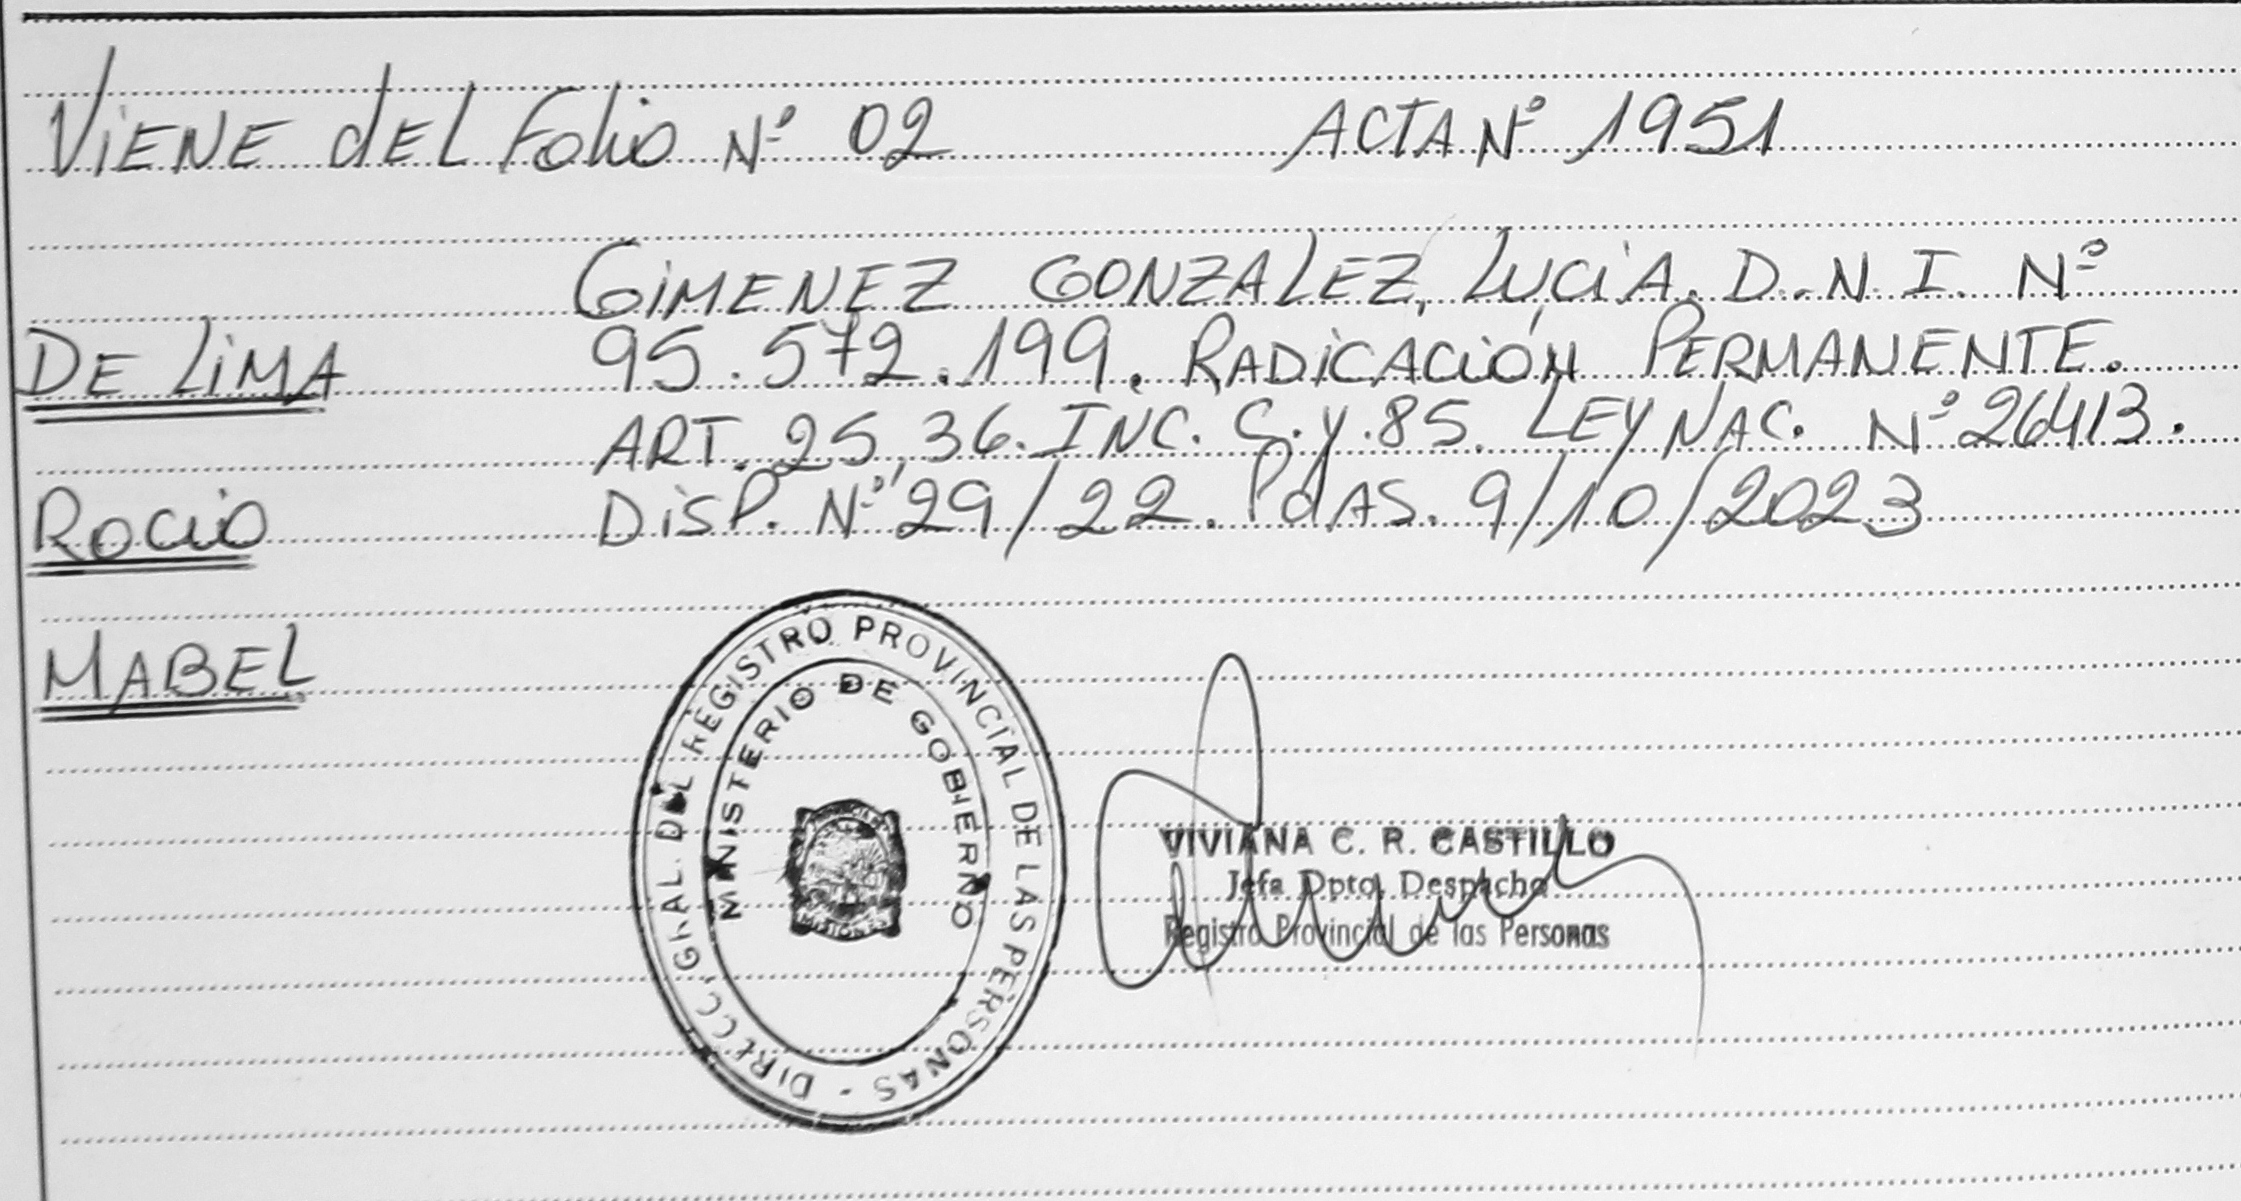 ViENE dEL Folio Nº 02 ACTA Nº 1951
GiMENEZ GONZALEZ, LUCiA. D.N.I. Nº
DE LiMA 95.572.199. RADiCACiÓN PERMANENTE.
ART. 25, 36. INC. C. y. 85. LEY NAC. Nº 26413.
ROCiO DiSP. Nº 29/22. PdAS. 9/10/2023
MABEL
DIRECC. GRAL. DEL REGISTRO PROVINCIAL DE LAS PERSONAS -
MINISTERIO DE GOBIERNO
MISIONES
VIVIANA C. R. CASTILLO
Jefa Dpto. Despacho
Registro Provincial de las Personas